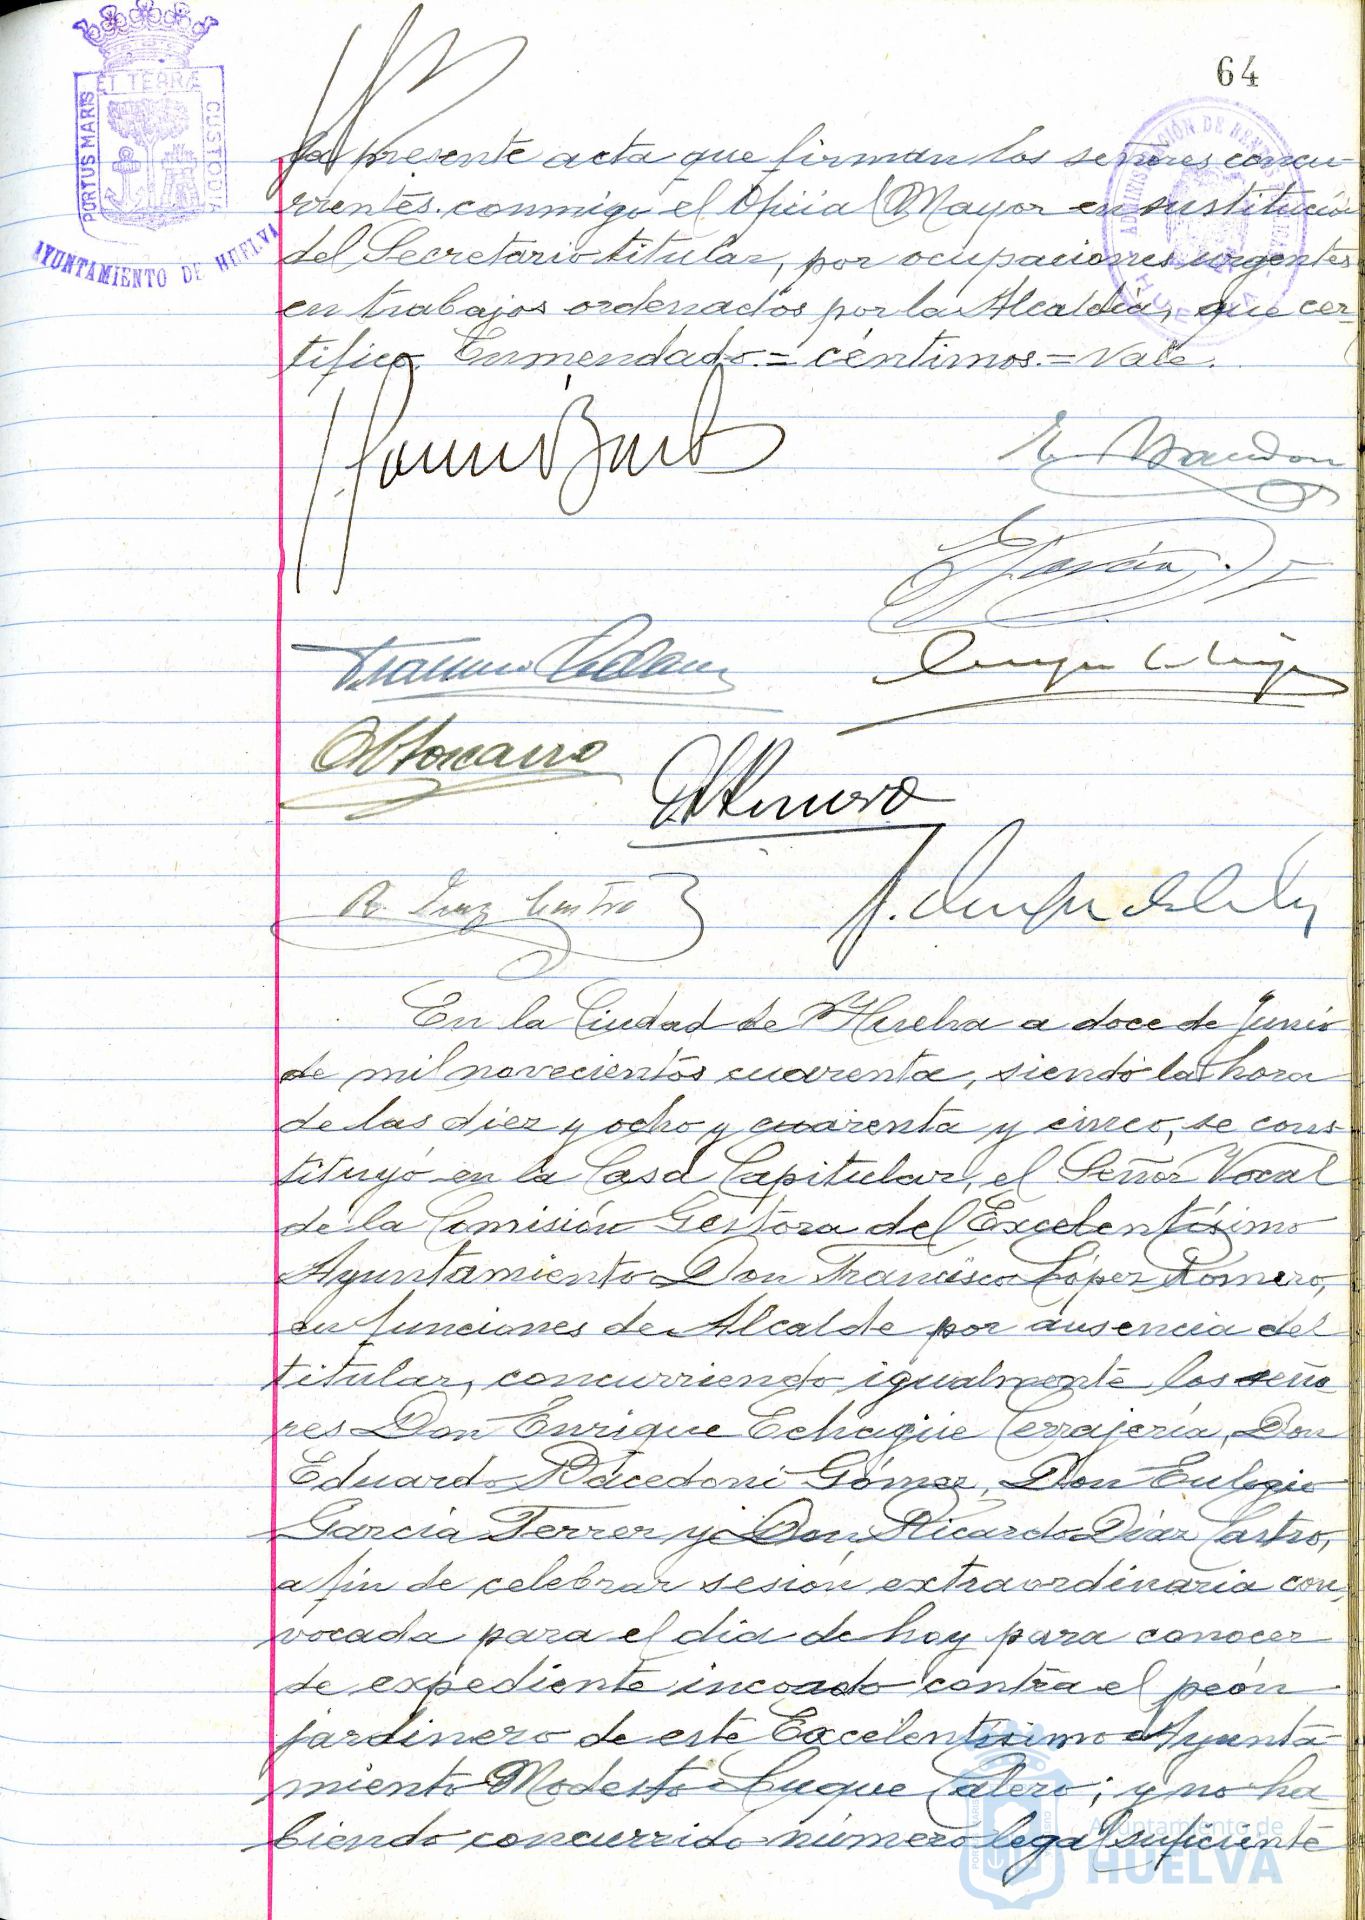 64
ET TERRÆ
PORTUS MARIS
CUSTODIA
AYUNTAMIENTO DE HUELVA
ADMINISTRACIÓN DE RENTAS
HUELVA
la presente acta que firman los señores concu-
rrentes conmigo el Oficial Mayor en sustitución
del Secretario titular, por ocupaciones urgentes
en trabajos ordenados por la Alcaldía, que cer-
tifico. Enmendado.=céntimos.=Vale.
R. Díaz Castro
En la Ciudad de Huelva a doce de Junio
de mil novecientos cuarenta, siendo la hora
de las diez y ocho y cuarenta y cinco, se cons-
tituyó en la Casa Capitular, el Señor Vocal
de la Comisión Gestora del Excelentísimo
Ayuntamiento Don Francisco López Romero,
en funciones de Alcalde por ausencia del
titular, concurriendo igualmente los seño
res Don Enrique Echagüe Cerrajería, Don
Eduardo Gómez, Don Eulogio
García Ferrer y Don Ricardo Díaz Castro,
a fin de celebrar sesión extraordinaria con-
vocada para el día de hoy para conocer
de expediente incoado contra el peón
jardinero de este Excelentísimo Ayunta-
miento Modesto Luque Calero; y no ha
biendo concurrido número legal suficiente
Ayuntamiento de
HUELVA